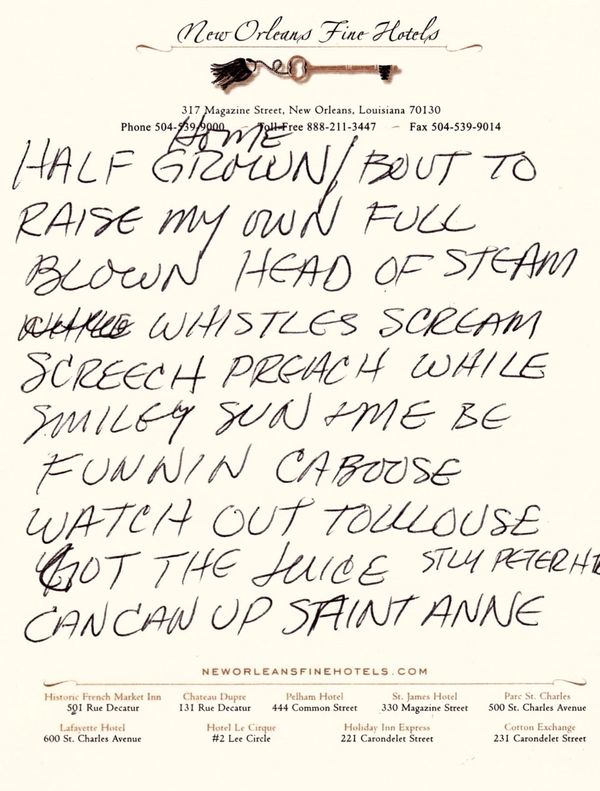 New Orleans Fine Hotels
317 Magazine Street, New Orleans, Louisiana 70130
Phone 504-539-9000 Toll Free 888-211-3447 – Fax 504-539-9014
HOME
HALF GROWN/BOUT TO
RAISE MY OWN FULL
BLOWN HEAD OF STEAM
WHISTLES SCREAM
SCREECH PREACH WHILE
SMILEY SUN & ME BE
FUNNIN CABOOSE
WATCH OUT TOULOUSE
GOT THE JUICE
CANCAN UP SAINT ANNE
NEWORLEANSFINEHOTELS.COM
Historic French Market Inn Chateau Dupre Pelham Hotel St. James Hotel Parc St. Charles
501 Rue Decatur 131 Rue Decatur 444 Common Street 330 Magazine Street 500 St. Charles Avenue
Lafayette Hotel Hotel Le Cirque Holiday Inn Express Cotton Exchange
600 St. Charles Avenue #2 Lee Circle 221 Carondelet Street 231 Carondelet Street